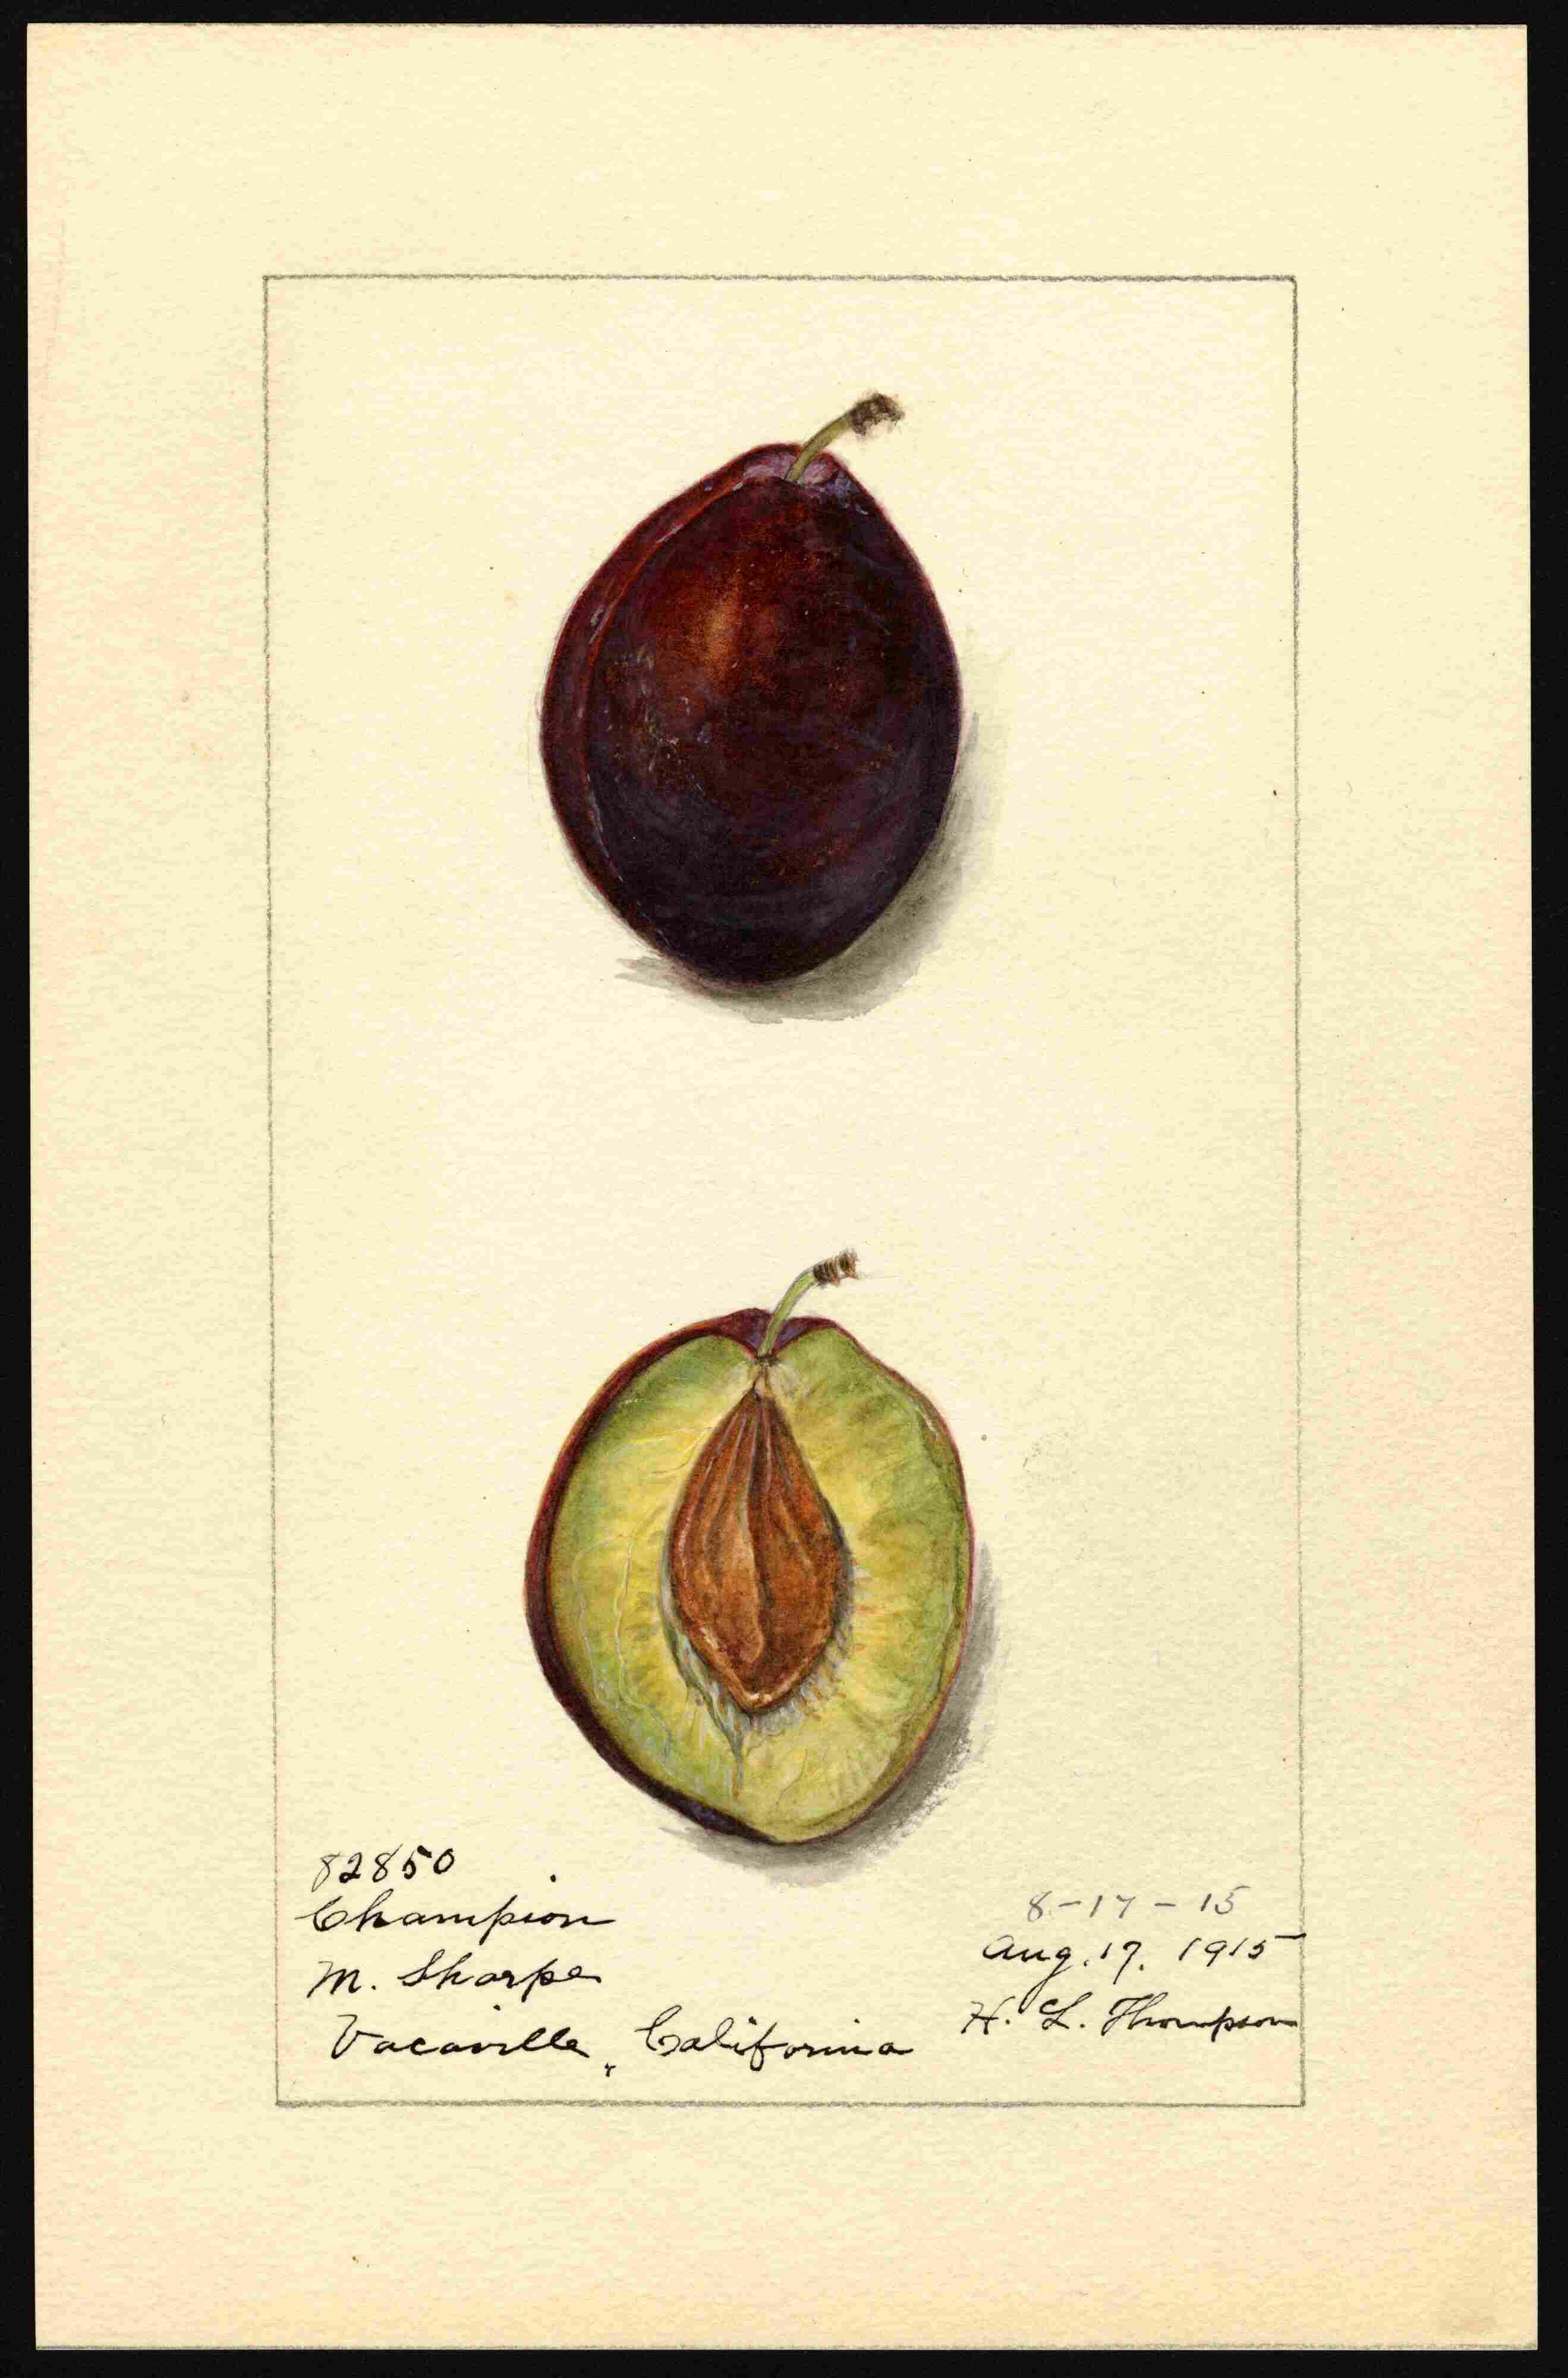 82850
Champion
M. Sharpe
Vacaville, California
8-17-15
Aug. 17. 1915
H. L. Thompson